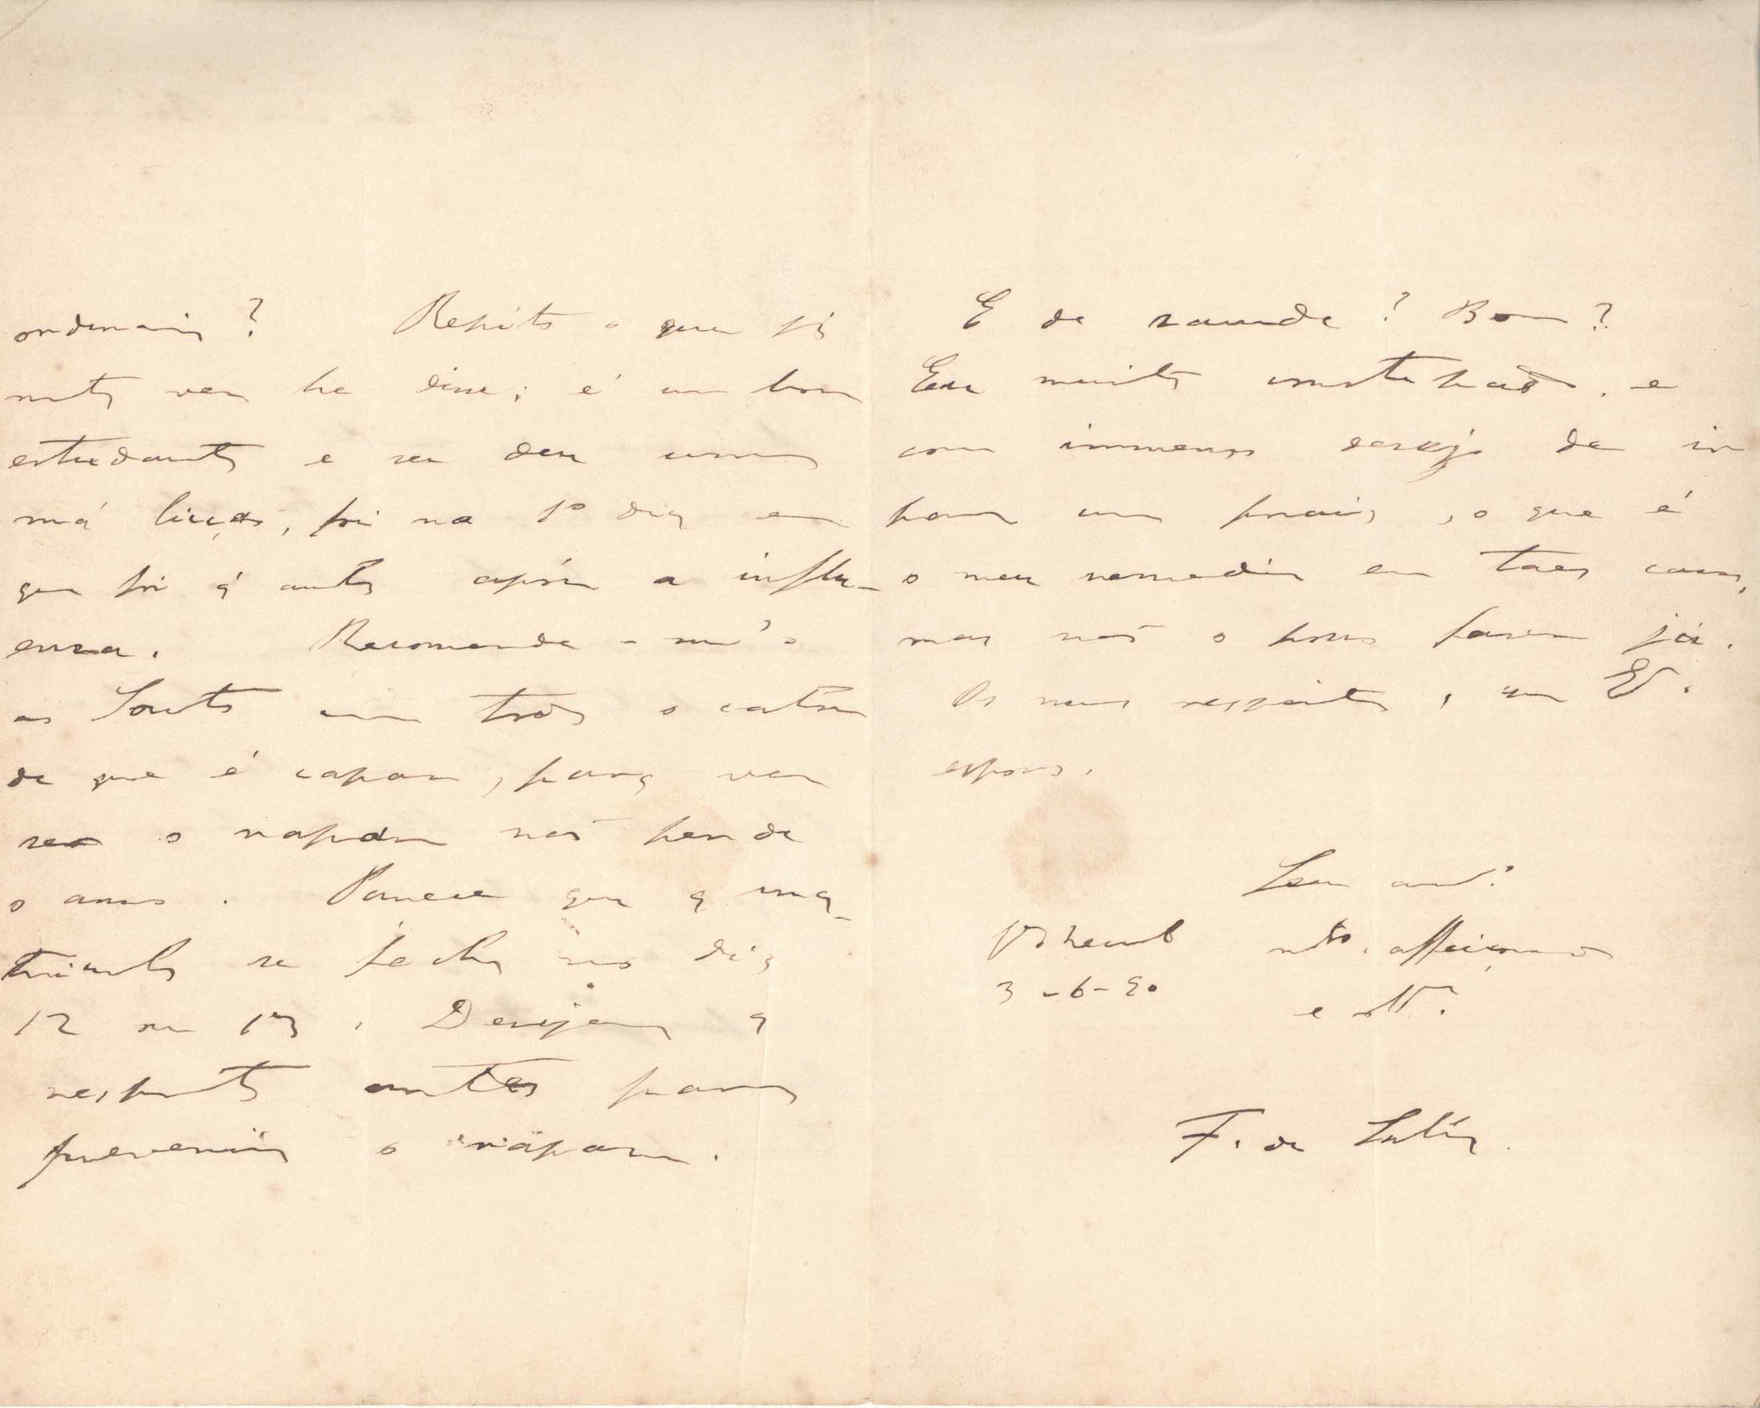 ordinario? Repito o que já
muitas vezes lhe disse; é um bom
estudante e se deu uma
má lição, foi no 1º dia em
que foi á aula após a influ-
enza. Recomende-m'o
ao Souto com todo o calor
de que é capaz, para ver
se o rapaz não perde
o anno. Parece que a ma-
tricula se fecha no dia
12 ou 13. Desejava a
resposta antes para
prevenir o rapaz.
E de saude? Bom?
Eu muito constipado, e
com immenso desejo de ir
para um paiz, o que é
o meu remedio em taes casos,
mas não o posso fazer já.
Os meus respeitos, a sua Ex.
esposa.
Seu am.º
mto. affeiçoado
3-6-90
e obr.º
F. de